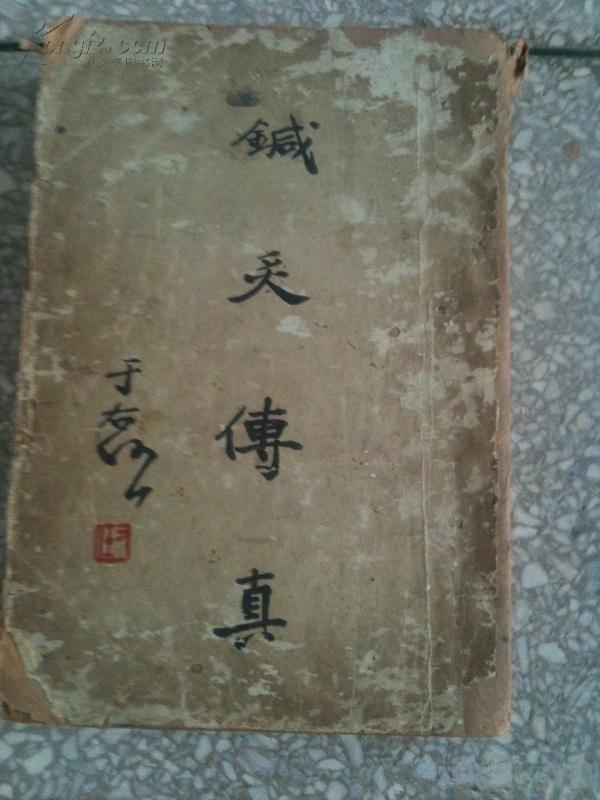 鍼灸傳真
于右任
Kongfz.com
孔夫子旧书网